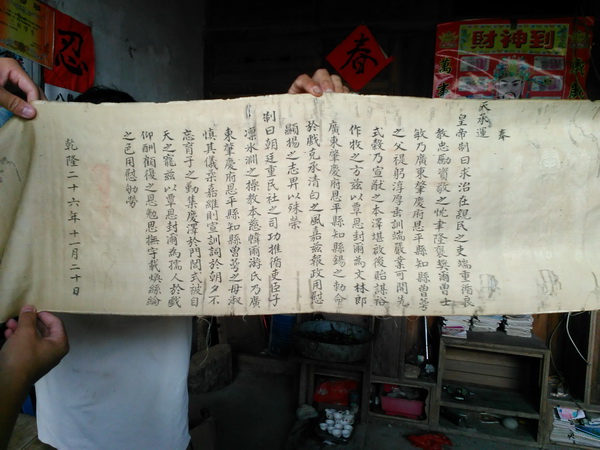 財神到
春
忍
奉
天承運
皇帝制曰求治在親民之吏端重循良
教忠勵資敬之忱聿隆褒奬爾曾士
敏乃廣東肇慶府恩平縣知縣曾萼
之父禔躬淳厚垂訓端嚴業可開先
式穀乃宣猷之本澤堪啟後貽謀裕
作牧之方茲以覃恩封爾為文林郎
廣東肇慶府恩平縣知縣錫之勅命
於戲克承清白之風嘉茲報政用慰
顯揚之志畀以殊榮
制曰朝廷重民社之司功推循吏臣子
凜冰淵之操教本慈幃爾游氏乃廣
東肇慶府恩平縣知縣曾萼之母淑
慎其儀柔嘉維則宣訓詞於朝夕不
忘育子之勤集慶澤於門閭式被自
天之寵茲以覃恩封爾為孺人於戲
仰酬顧復之恩勉思撫字載煥絲綸
之色用慰劬勞
乾隆二十六年十一月二十日